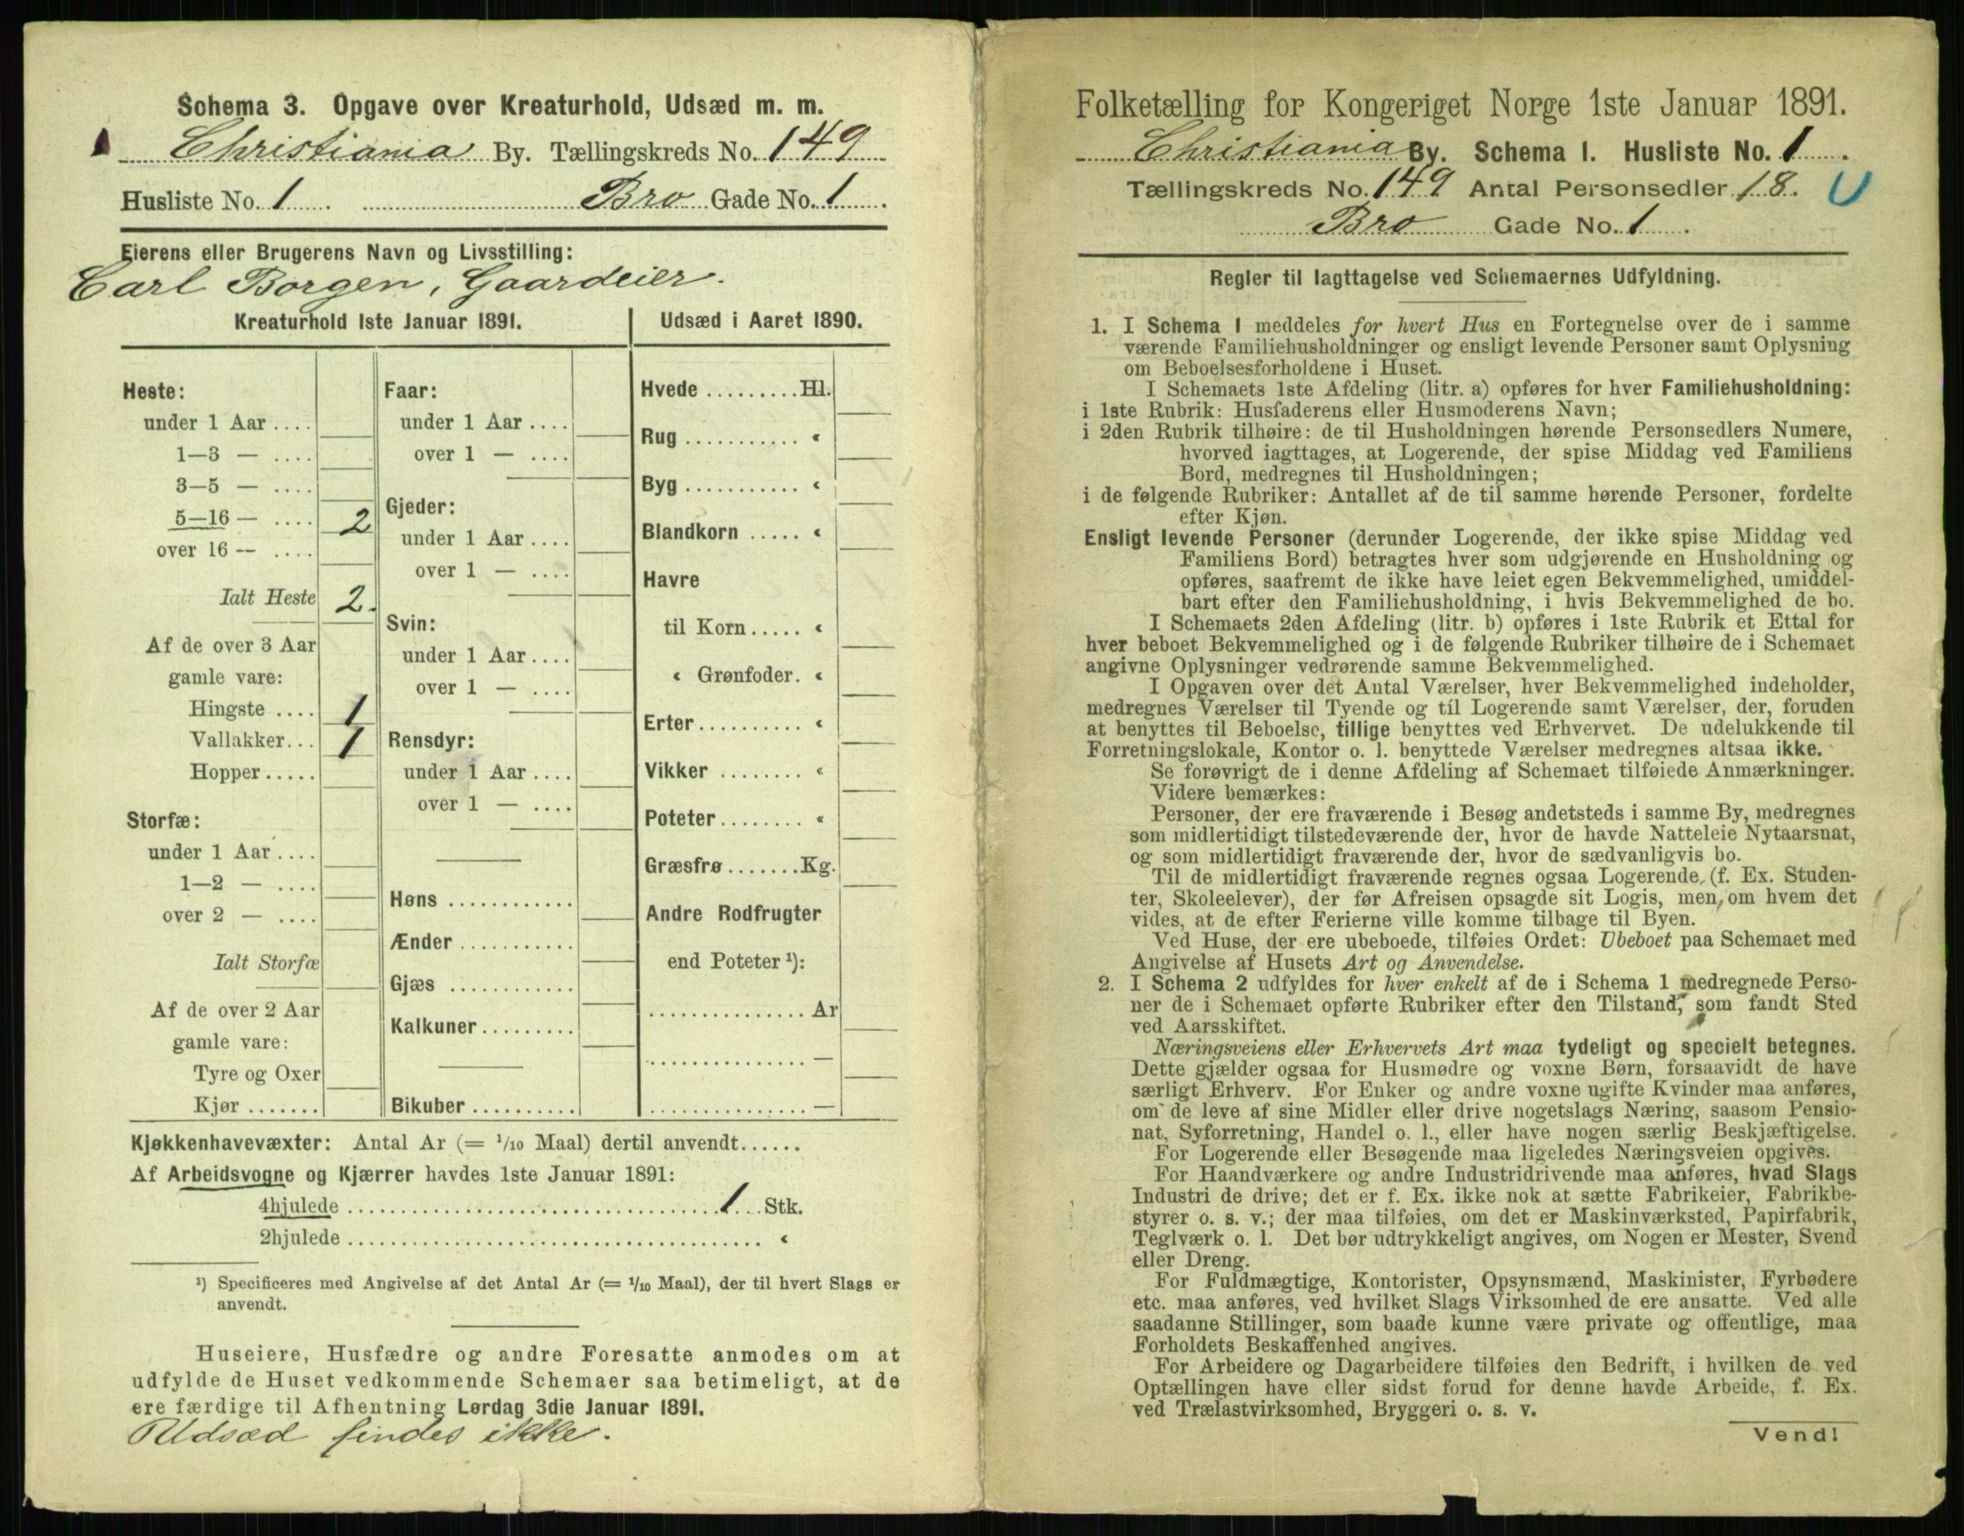 Schema 3. Opgave over Kreaturhold, Udsæd m. m.
Christiania By. Tællingskreds No. 149
Husliste No. 1 Bro Gade No. 1
Eierens eller Brugerens Navn og Livsstilling:
Carl Borgen, Gaardeier.
Kreaturhold 1ste Januar 1891.
Heste:
under 1 Aar ....
1—3 — ....
3—5 — ....
5—16 — .... 2
over 16 — ....
Ialt Heste 2.
Af de over 3 Aar
gamle vare:
Hingste .... 1
Vallakker... 1
Hopper.....
Storfæ:
under 1 Aar ....
1—2 — ....
over 2 — ....
Ialt Storfæ
Af de over 2 Aar
gamle vare:
Tyre og Oxer
Kjør .......
Faar:
under 1 Aar ....
over 1 — ....
Gjeder:
under 1 Aar ....
over 1 — ....
Svin:
under 1 Aar ....
over 1 — ....
Rensdyr:
under 1 Aar ....
over 1 — ....
Høns ............
Ænder ...........
Gjæs ............
Kalkuner.........
Bikuber ..........
Udsæd i Aaret 1890.
Hvede .........Hl.
Rug ........... «
Byg ........... «
Blandkorn ..... «
Havre
til Korn..... «
« Grønfoder. «
Erter.......... «
Vikker ........ «
Poteter........ «
Græsfrø.......Kg.
Andre Rodfrugter
end Poteter ¹):
...............Ar
...............—
...............—
Kjøkkenhavevæxter: Antal Ar (= 1/10 Maal) dertil anvendt......
Af Arbeidsvogne og Kjærrer havdes 1ste Januar 1891:
4hjulede ............ 1 Stk.
2hjulede ............ «
¹) Specificeres med Angivelse af det Antal Ar (= 1/10 Maal), der til hvert Slags er
anvendt.
Huseiere, Husfædre og andre Foresatte anmodes om at
udfylde de Huset vedkommende Schemaer saa betimeligt, at de
ere færdige til Afhentning Lørdag 3die Januar 1891.
Udsæd findes ikke.
Folketælling for Kongeriget Norge 1ste Januar 1891.
Christiania By. Schema 1. Husliste No. 1
Tællingskreds No. 149 Antal Personsedler 18. U
Bro Gade No. 1
Regler til Iagttagelse ved Schemaernes Udfyldning.
1. I Schema 1 meddeles for hvert Hus en Fortegnelse over de i samme
værende Familiehusholdninger og ensligt levende Personer samt Oplysning
om Beboelsesforholdene i Huset.
I Schemaets 1ste Afdeling (litr. a) opføres for hver Familiehusholdning:
i 1ste Rubrik: Husfaderens eller Husmoderens Navn;
i 2den Rubrik tilhøire: de til Husholdningen hørende Personsedlers Numere,
hvorved iagttages, at Logerende, der spise Middag ved Familiens
Bord, medregnes til Husholdningen;
i de følgende Rubriker: Antallet af de til samme hørende Personer, fordelte
efter Kjøn.
Ensligt levende Personer (derunder Logerende, der ikke spise Middag ved
Familiens Bord) betragtes hver som udgjørende en Husholdning og
opføres, saafremt de ikke have leiet egen Bekvemmelighed, umiddel-
bart efter den Familiehusholdning, i hvis Bekvemmelighed de bo.
I Schemaets 2den Afdeling (litr. b) opføres i 1ste Rubrik et Ettal for
hver beboet Bekvemmelighed og i de følgende Rubriker tilhøire de i Schemaet
angivne Oplysninger vedrørende samme Bekvemmelighed.
I Opgaven over det Antal Værelser, hver Bekvemmelighed indeholder,
medregnes Værelser til Tyende og til Logerende samt Værelser, der, foruden
at benyttes til Beboelse, tillige benyttes ved Erhvervet. De udelukkende til
Forretningslokale, Kontor o. l. benyttede Værelser medregnes altsaa ikke.
Se forøvrigt de i denne Afdeling af Schemaet tilføiede Anmærkninger.
Videre bemærkes:
Personer, der ere fraværende i Besøg andetsteds i samme By, medregnes
som midlertidigt tilstedeværende der, hvor de havde Natteleie Nytaarsnat,
og som midlertidigt fraværende der, hvor de sædvanligvis bo.
Til de midlertidigt fraværende regnes ogsaa Logerende (f. Ex. Studen-
ter, Skoleelever), der før Afreisen opsagde sit Logis, men om hvem det
vides, at de efter Ferierne ville komme tilbage til Byen.
Ved Huse, der ere ubeboede, tilføies Ordet: Ubeboet paa Schemaet med
Angivelse af Husets Art og Anvendelse.
2. I Schema 2 udfyldes for hver enkelt af de i Schema 1 medregnede Perso-
ner de i Schemaet opførte Rubriker efter den Tilstand, som fandt Sted
ved Aarsskiftet.
Næringsveiens eller Erhvervets Art maa tydeligt og specielt betegnes.
Dette gjælder ogsaa for Husmødre og voxne Børn, forsaavidt de have
særligt Erhverv. For Enker og andre voxne ugifte Kvinder maa anføres,
om de leve af sine Midler eller drive nogetslags Næring, saasom Pensio-
nat, Syforretning, Handel o. l., eller have nogen særlig Beskjæftigelse.
For Logerende eller Besøgende maa ligeledes Næringsveien opgives.
For Haandværkere og andre Industridrivende maa anføres, hvad Slags
Industri de drive; det er f. Ex. ikke nok at sætte Fabrikeier, Fabrikbe-
styrer o. s. v.; der maa tilføies, om det er Maskinværksted, Papirfabrik,
Teglværk o. l. Det bør udtrykkeligt angives, om Nogen er Mester, Svend
eller Dreng.
For Fuldmægtige, Kontorister, Opsynsmænd, Maskinister, Fyrbødere
etc. maa anføres, ved hvilket Slags Virksomhed de ere ansatte. Ved alle
saadanne Stillinger, som baade kunne være private og offentlige, maa
Forholdets Beskaffenhed angives.
For Arbeidere og Dagarbeidere tilføies den Bedrift, i hvilken de ved
Optællingen have eller sidst forud for denne havde Arbeide, f. Ex.
ved Trælastvirksomhed, Bryggeri o. s. v.
Vend!